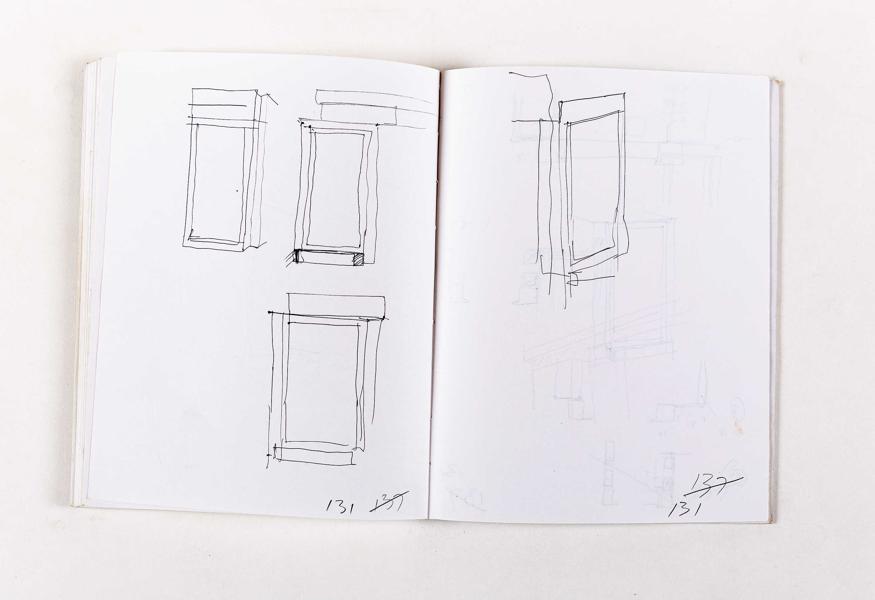 131 137
137
131